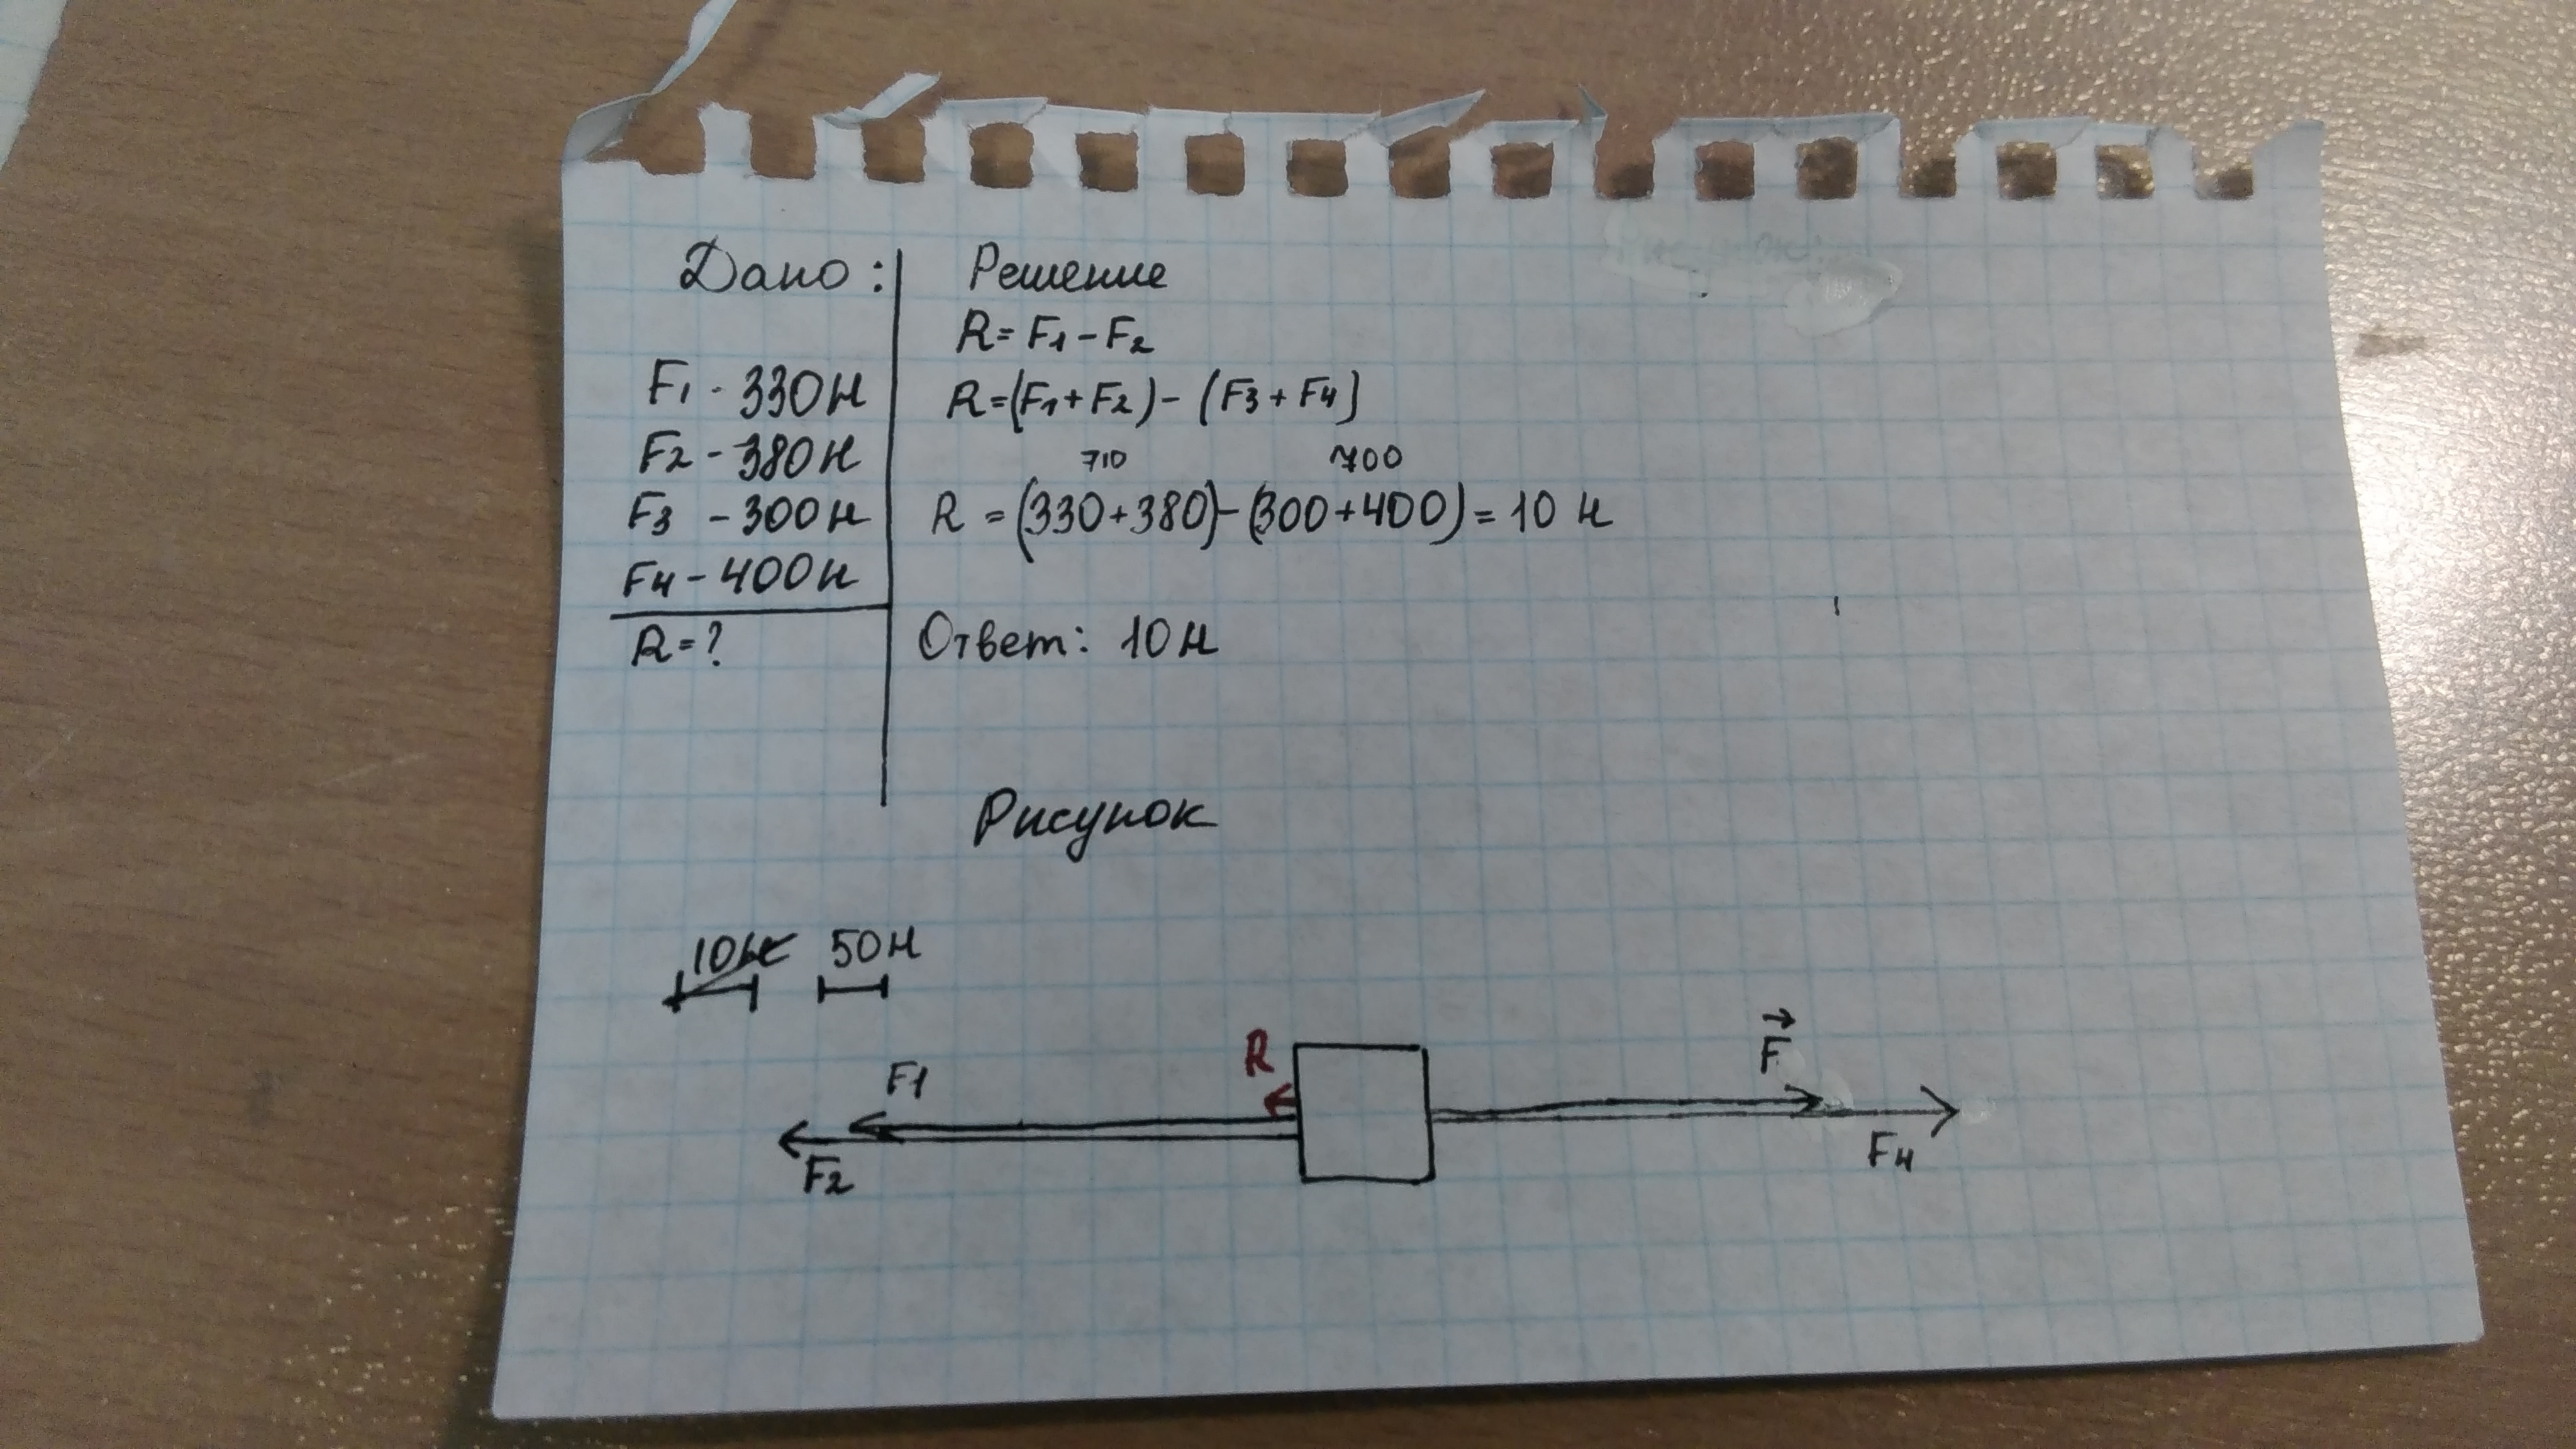 Дано:
F1 - 330Н
F2 - 380Н
F3 - 300Н
F4 - 400Н
R = ?
Решение
R = F1 - F2
R = (F1 + F2) - (F3 + F4)
710 700
R = (330+380) - (300+400) = 10 Н
Ответ: 10Н
Рисунок
10Н 50Н
R
F
F1
F2
F4